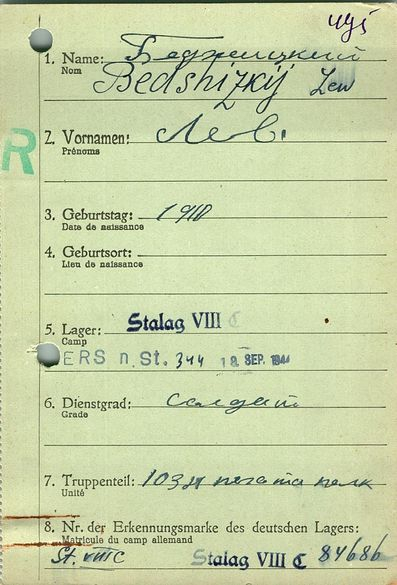 1. Name: Бедрицкий
Nom
Bedshizkij Lew
R
2. Vornamen: Лев.
Prénoms
3. Geburtstag: 1910
Date de naissance
4. Geburtsort:
Lieu de naissance
5. Lager: Stalag VIII C
Camp
VERS n. St. 344 18 SEP. 1944
6. Dienstgrad: салдат
Grade
7. Truppenteil: 103 пехота полк
Unité
8. Nr. der Erkennungsmarke des deutschen Lagers:
Matricule du camp allemand
St. VIIIC Stalag VIII C 84686